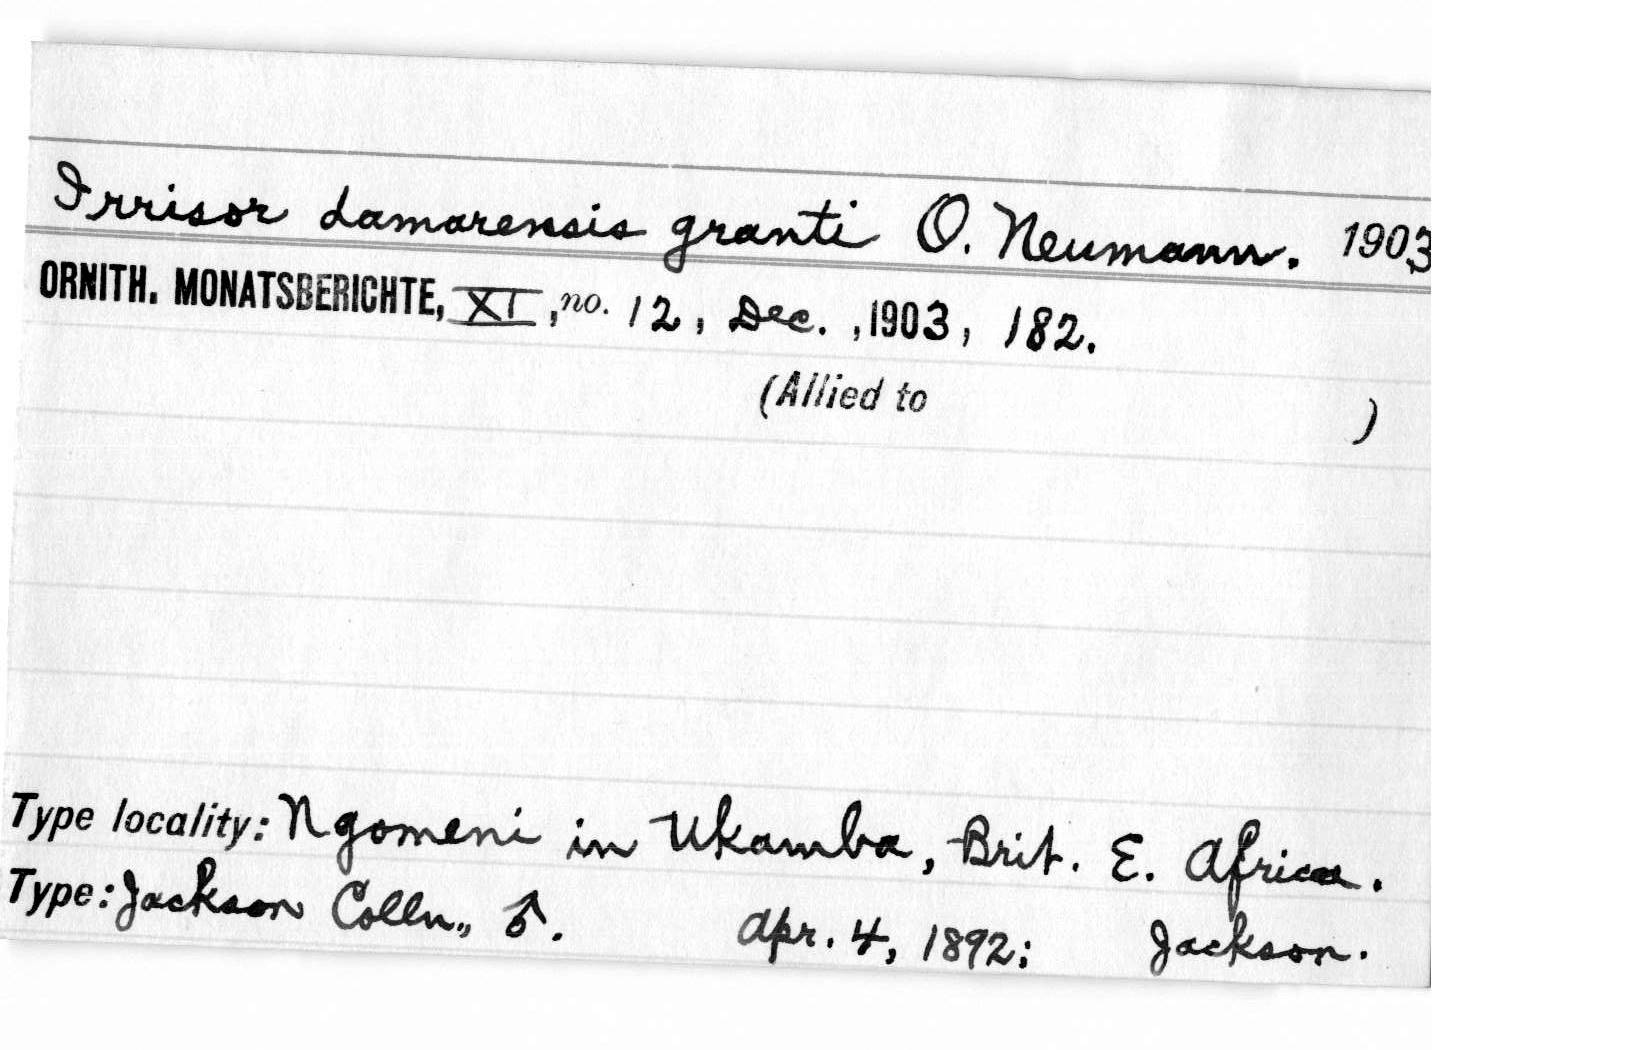 Irrisor damarensis granti O. Neumann. 1903
ORNITH. MONATSBERICHTE, XI, no. 12, Dec., 1903, 182.
(Allied to )
Type locality: Ngomeni in Ukamba, Brit. E. Africa.
Type: Jackson Colln., ♂. Apr. 4, 1892; Jackson.